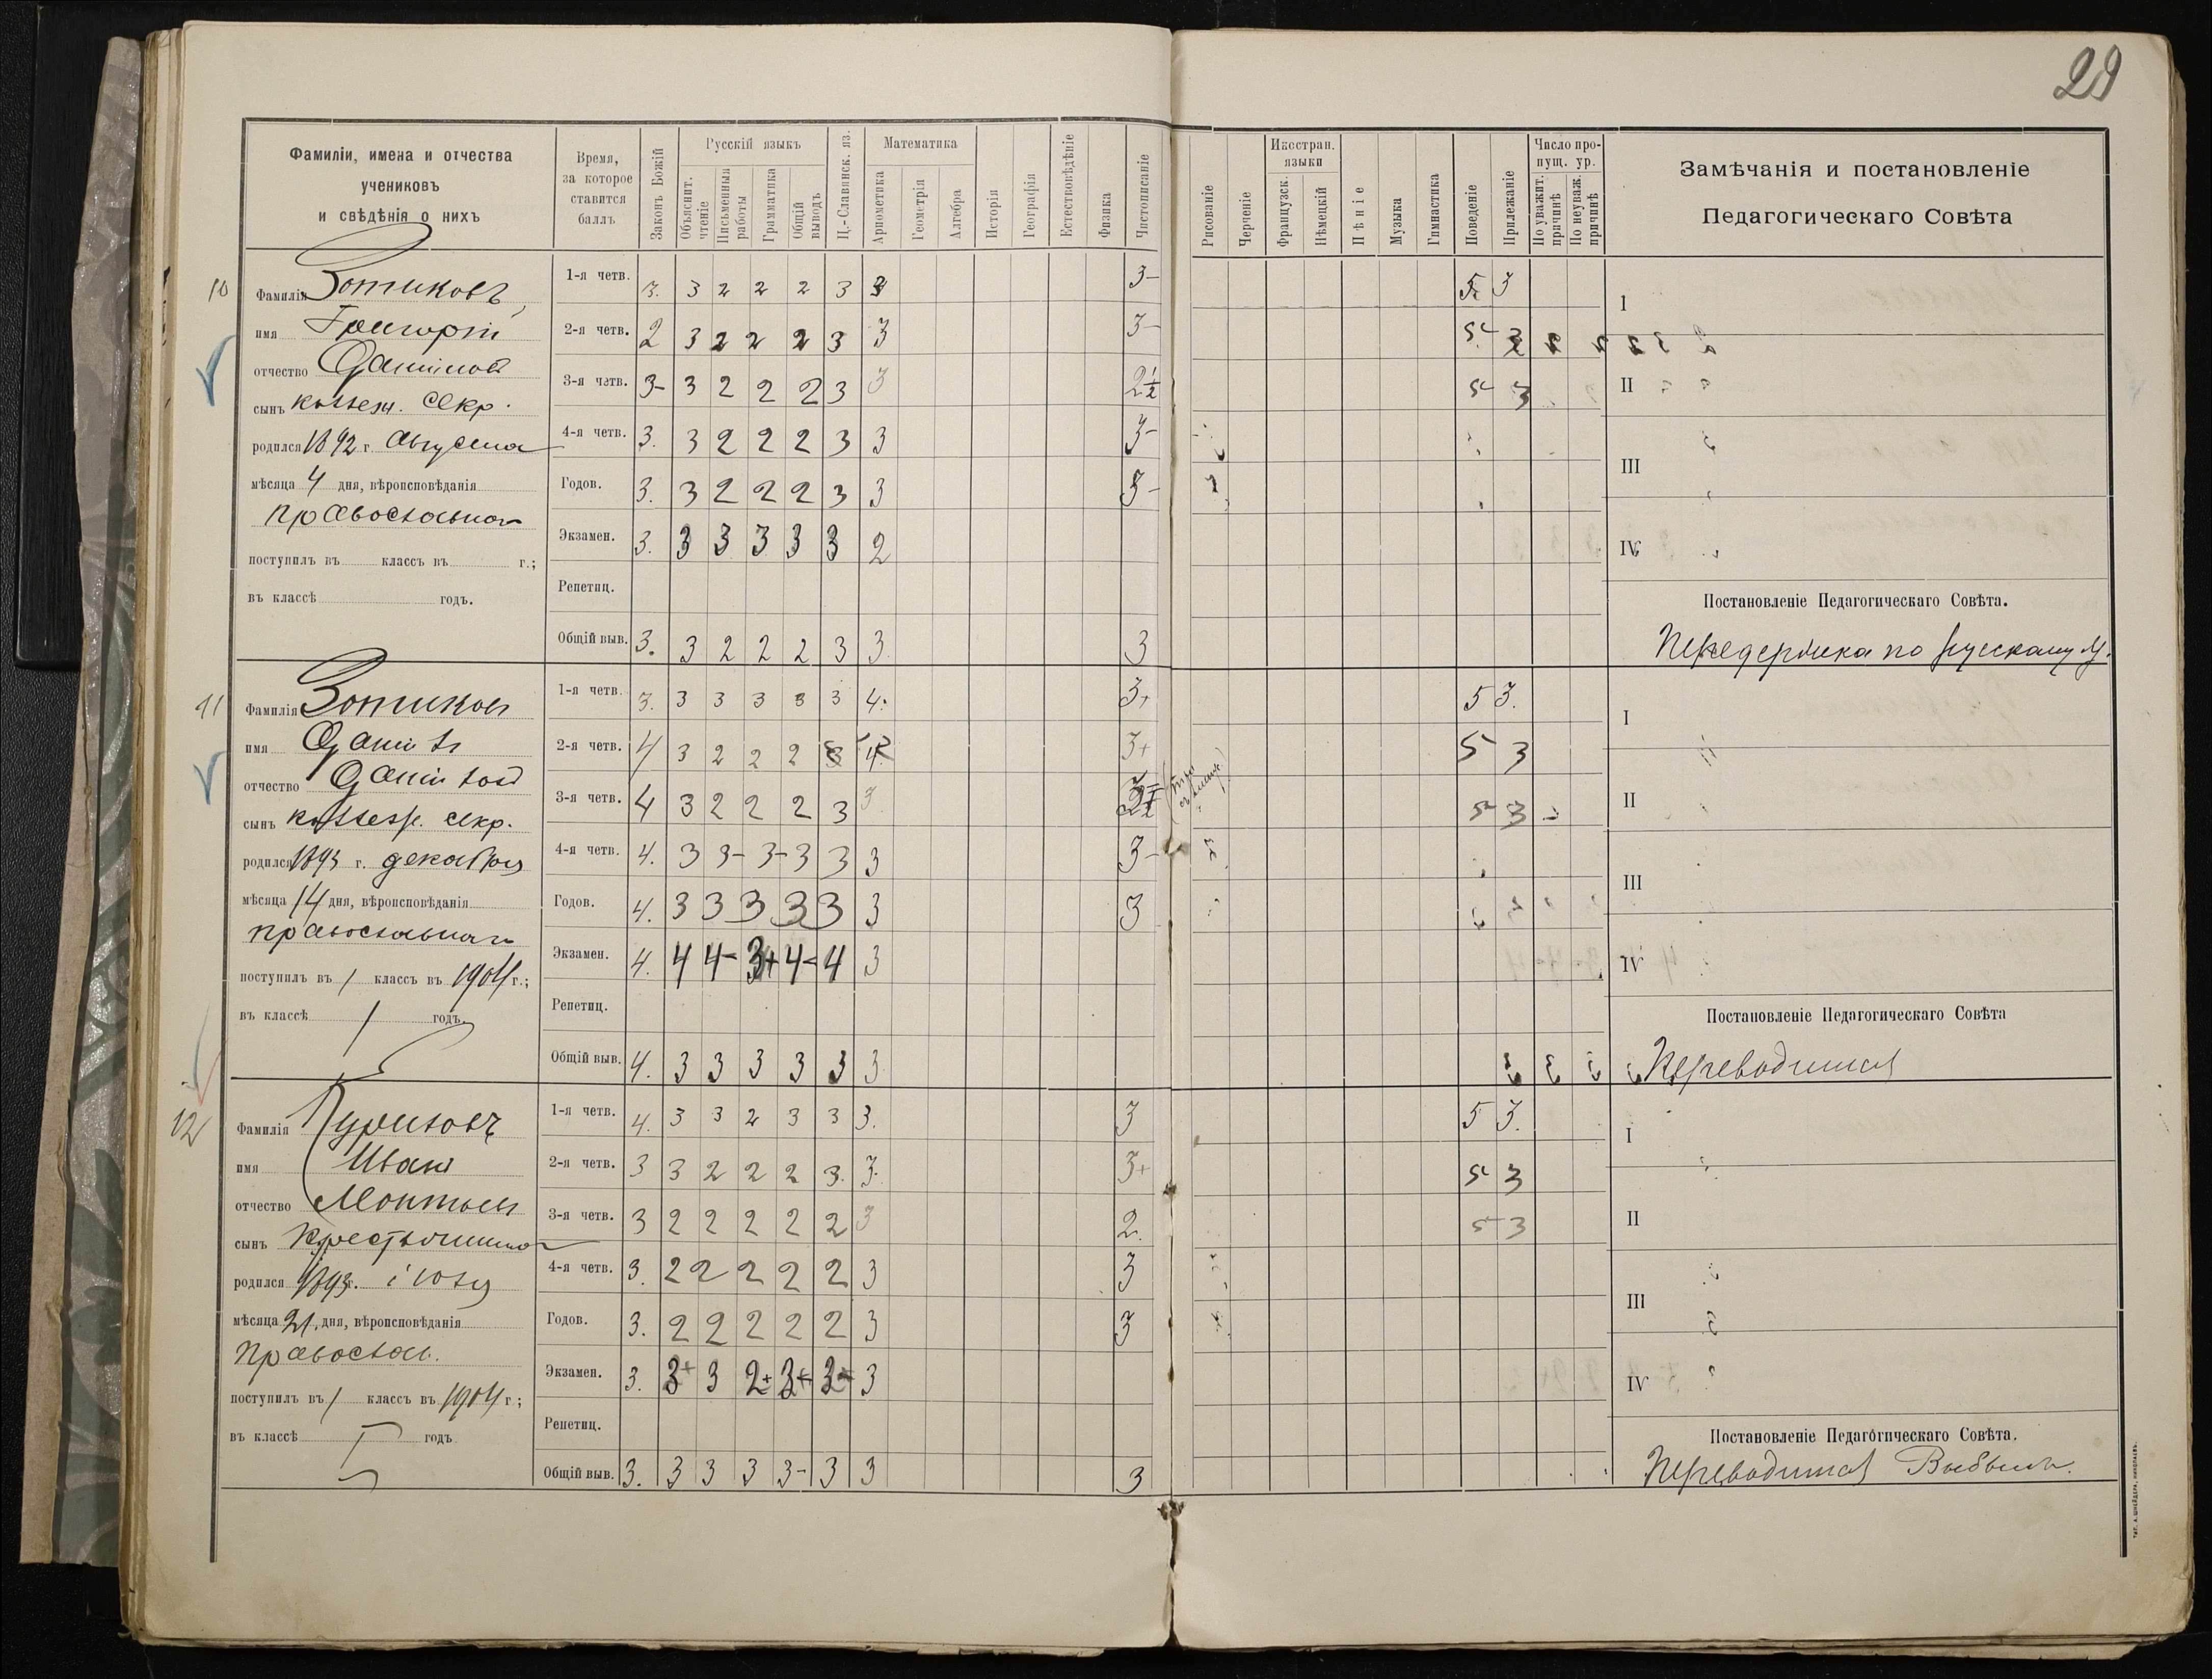 29
Фамиліи, имена и отчества
учениковъ
и свѣдѣнія о нихъ
Время,
за которое
ставится
баллъ
Законъ Божій
Русскій языкъ
Объяснит.
чтеніе
Письменныя
работы
Грамматика
Общій
выводъ
Ц.-Славянск. яз.
Математика
Ариѳметика
Геометрія
Алгебра
Исторія
Географія
Естествовѣдѣніе
Физика
Чистописаніе
Рисованіе
Черченіе
Иностран.
языки
Французск.
Нѣмецкій
Пѣніе
Музыка
Гимнастика
Поведеніе
Прилежаніе
Число про-
пущ. ур.
По уважит.
причинѣ
По неуваж.
причинѣ
Замѣчанія и постановленіе
Педагогическаго Совѣта
10
Фамилія Зотиковъ
имя Григорій
отчество Даніиловъ
сынъ коллеж. секр.
родился 1892 г. Августа
мѣсяца 4 дня, вѣроисповѣданія
православнаго
поступилъ въ классъ въ г.;
въ классѣ годъ.
1-я четв. 3. 3 2 2 2 3 3 3- 5 3
2-я четв. 2 3 2 2 2 3 3 3- 5 3
3-я четв. 3- 3 2 2 2 3 3 2½ 5 3
4-я четв. 3. 3 2 2 2 3 3 3-
Годов. 3. 3 2 2 2 3 3 3-
Экзамен. 3. 3 3 3 3 3 2
Репетиц.
Общій выв. 3. 3 2 2 2 3 3. 3
I
II
III
IV
Постановленіе Педагогическаго Совѣта.
Передержка по русскому
11
Фамилія Зотиковъ
имя Даніилъ
отчество Даніиловъ
сынъ коллеж. секр.
родился 1893 г. декабря
мѣсяца 14 дня, вѣроисповѣданія
православнаго
поступилъ въ 1 классъ въ 1904 г.;
въ классѣ 1 годъ.
1-я четв. 3. 3 3 3 3 3 4. 3+ 5 3.
2-я четв. 4 3 2 2 2 3 4 3+ 5 3
3-я четв. 4 3 2 2 2 3 3 5 3
4-я четв. 4. 3 3- 3- 3 3 3 3-
Годов. 4. 3 3 3 3 3 3 3
Экзамен. 4. 4 4- 3+ 4- 4 3
Репетиц.
Общій выв. 4. 3 3 3 3 3 3
I
II
III
IV
Постановленіе Педагогическаго Совѣта
Переводится
12
Фамилія
имя Иванъ
отчество
сынъ крестьянина
родился 1893 г. іюля
мѣсяца 21. дня, вѣроисповѣданія
православ.
поступилъ въ 1 классъ въ 1904 г;
въ классѣ I годъ
1-я четв. 4. 3 3 2 3 3 3. 3 5 3.
2-я четв. 3 3 2 2 2 3. 3. 3+ 5 3
3-я четв. 3 2 2 2 2 2 3 2. 5 3
4-я четв. 3. 2 2 2 2 2 3 3
Годов. 3. 2 2 2 2 2 3 3
Экзамен. 3. 3+ 3 2+ 3+ 3- 3
Репетиц.
Общій выв. 3. 3 3 3 3- 3 3 3
I
II
III
IV
Постановленіе Педагогическаго Совѣта.
Переводится Выбылъ.
ТИП. А. ШНЕЙДЕРА, НИКОЛАЕВЪ.